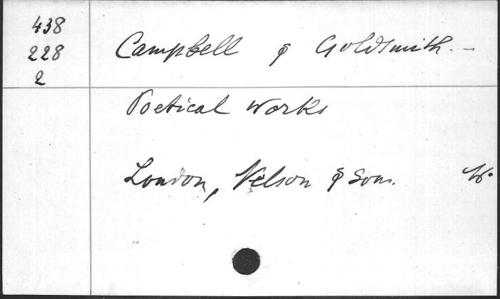 438
228
2
Campbell & Goldsmith. —
Poetical Works
London, Nelson & Sons.